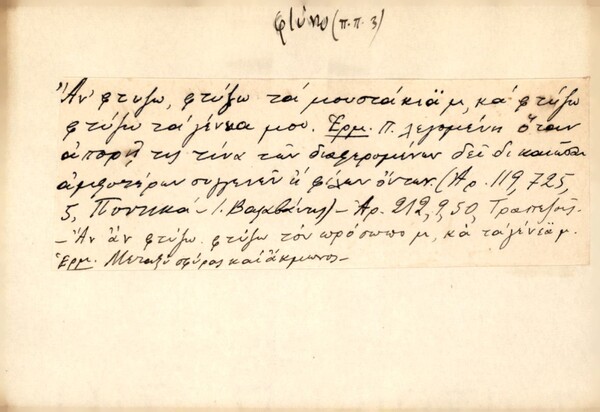 φτύνω (π.π. 3)
"Ἄν φτύξω, φτύξω τὰ μουστάκιᾰ μ, κά φτύξω
φτύξω τὰ γένεια μου. Ἑρμ. Π. λεγομένη ὅταν
ἀπορῇ τις τίνα τῶν διαφερομένων δεῖ δικαιῶσαι
ἀμφοτέρων συγγενῶν ἢ φίλων ὄντων. (Ἀρ. 119, 725,
5, Ποντικά - Ι. Βαλαβάνης) - Ἀρ. 212, 9, 50, Τραπεζοῦς.
- Ἂν ἄν φτύξω φτύξω τὸν πρόσωπο μ, κὰ τὰ γένιᾰ μ.
Ἑρμ. Μεταξὺ σφύρας καὶ ἄκμωνος -